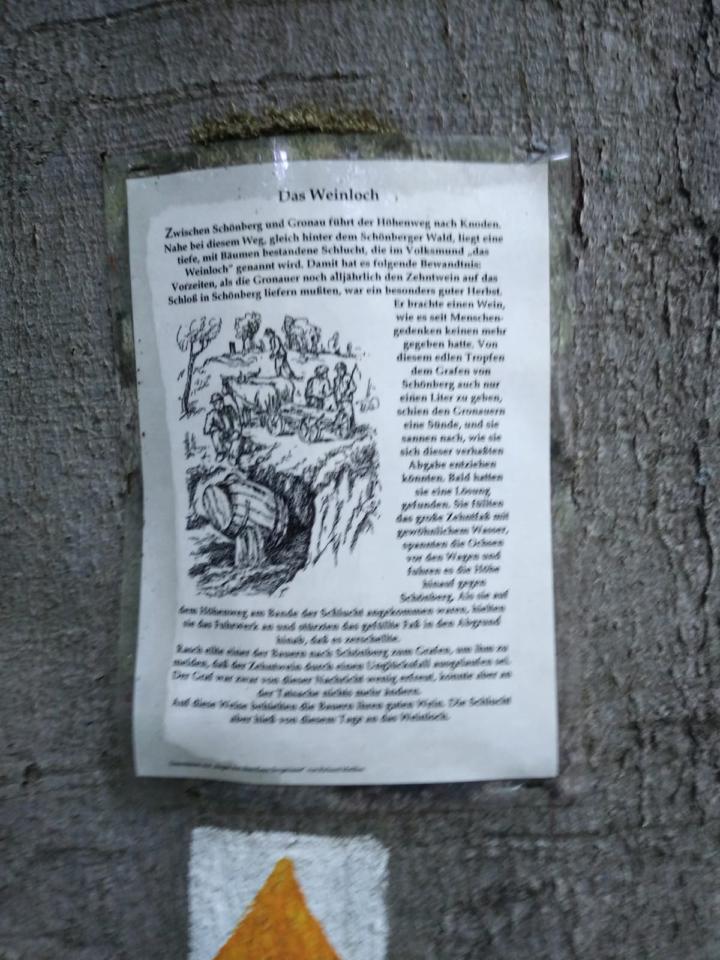 Das Weinloch
Zwischen Schönberg und Gronau führt der Höhenweg nach Knoden.
Nahe bei diesem Weg, gleich hinter dem Schönberger Wald, liegt eine
tiefe, mit Bäumen bestandene Schlucht, die im Volksmund „das
Weinloch" genannt wird. Damit hat es folgende Bewandtnis:
Vorzeiten, als die Gronauer noch alljährlich den Zehntwein auf das
Schloß in Schönberg liefern mußten, war ein besonders guter Herbst.
Er brachte einen Wein,
wie es seit Menschen-
gedenken keinen mehr
gegeben hatte. Von
diesem edlen Tropfen
dem Grafen von
Schönberg auch nur
einen Liter zu geben,
schien den Gronauern
eine Sünde, und sie
sannen nach, wie sie
sich dieser verhaßten
Abgabe entziehen
könnten. Bald hatten
sie eine Lösung
gefunden. Sie füllten
das große Zehntfaß mit
gewöhnlichem Wasser,
spannten die Ochsen
vor den Wagen und
fuhren es die Höhe
hinauf gegen
Schönberg. Als sie auf
dem Höhenweg am Rande der Schlucht angekommen waren, hielten
sie das Fuhrwerk an und stürzten das gefüllte Faß in den Abgrund
hinab, daß es zerschellte.
Rasch eilte einer der Bauern nach Schönberg zum Grafen, um ihm zu
melden, daß der Zehntwein durch einen Unglücksfall ausgelaufen sei.
Der Graf war zwar von dieser Nachricht wenig erfreut, konnte aber an
der Tatsache nichts mehr ändern.
Auf diese Weise behielten die Bauern ihren guten Wein. Die Schlucht
aber hieß von diesem Tage an das Weinloch.